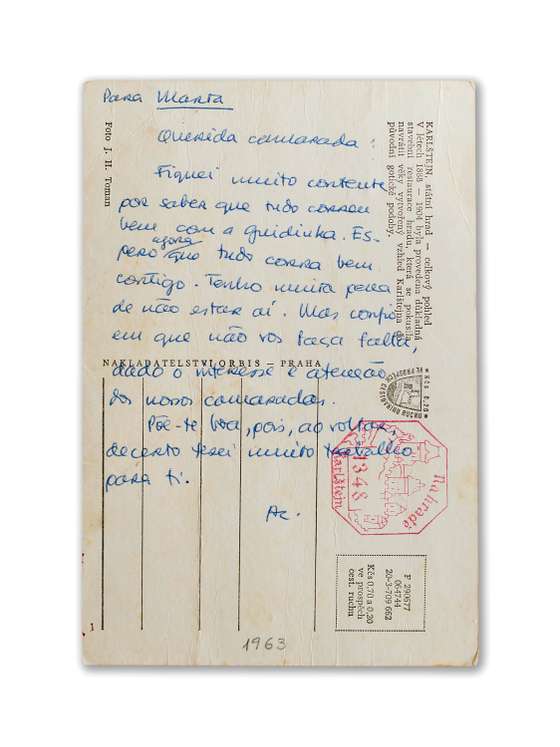 Para Marta
Querida camarada:
Fiquei muito contente
por saber que tudo correu
bem com a guidinha. Es-
pero agora que tudo corra bem
contigo. Tenho muita pena
de não estar aí. Mas confio
em que não vos faça falta,
dado o interesse e atenção
dos nossos camaradas.
Põe-te boa, pois, ao voltar,
decerto terei muito trabalho
para ti.
Ac.
1963
Foto J. H. Toman
NAKLADATELSTVI ORBIS — PRAHA
1
KARLŠTEJN, státní hrad — celkový pohled
V letech 1888 — 1904 byla provedena důkladná
stavební restaurace hradu, která se pokusila
navrátit věky vytvořený vzhled Karlštejna do
původní gotické podoby.
* Kčs 0,20 *
Na hradě
1348
Karlštejn
F 290677
064744
20-3-709 662
Kčs 0,70 a 0,20
ve prospěch
cest. ruchu